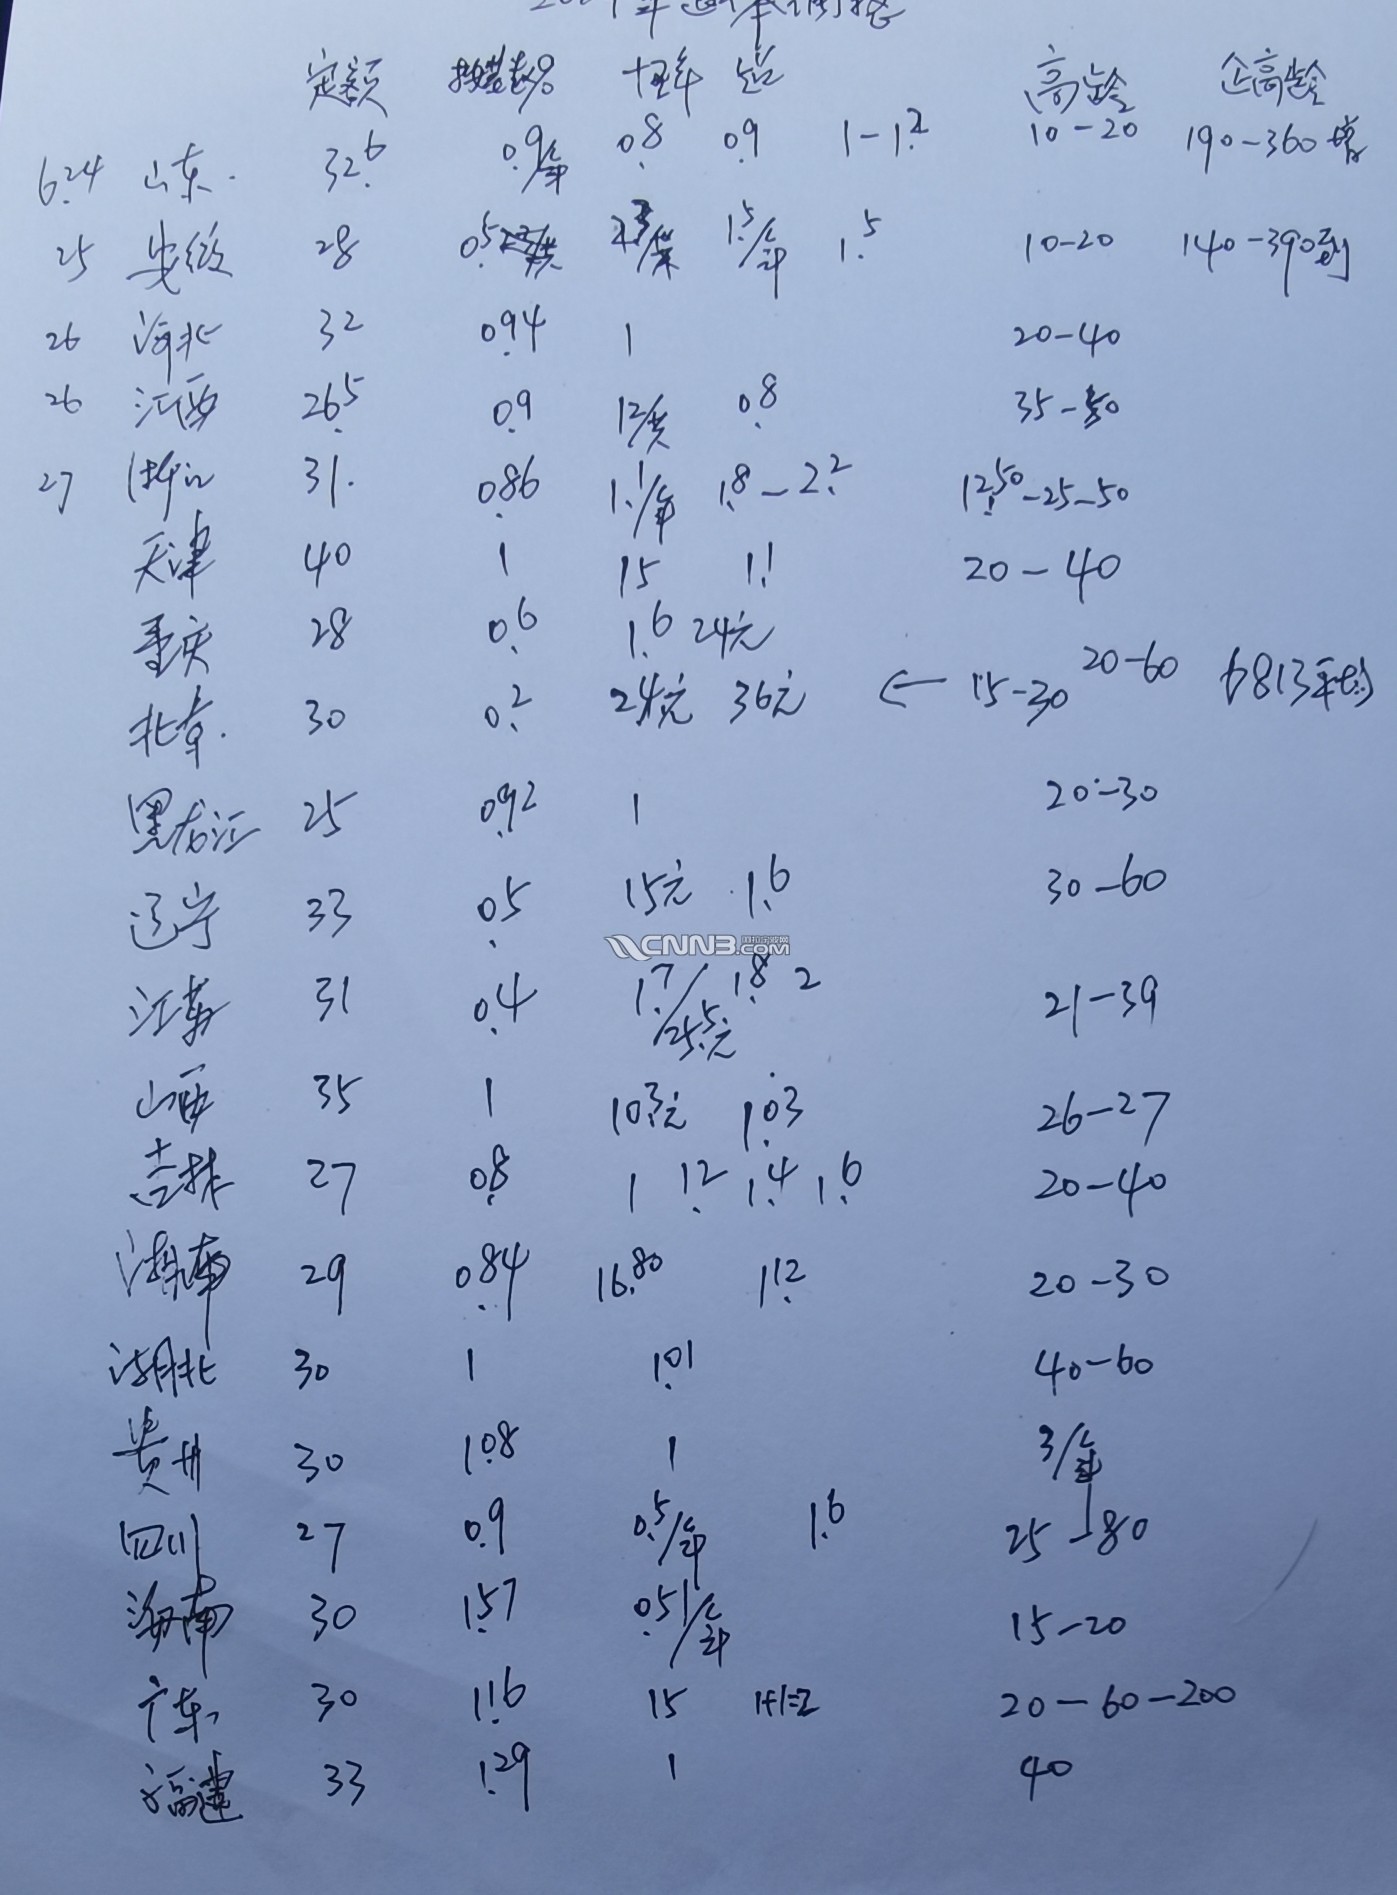 定额 按基数% 十五年 超 高龄 企高龄
6.24 山东. 32.6 0.9/年 0.8 0.9 1-1.2 10-20 190-360增
25 安徽 28 0.5 1.5/年 1.5 10-20 140-390到
26 河北 32 0.94 1 20-40
26 江西 26.5 0.9 12/ 0.8 35-50
27 浙江 31. 0.86 1.1/年 1.8-2.2 12.50-25-50
天津 40 1 15 1.1 20-40
重庆 28 0.6 1.6 24元
北京. 30 0.2 24元 36元 ← 15-30 20-60 6813平均
黑龙江 25 0.92 1 20-30
辽宁 33 0.5 15元 1.6 30-60
CNNB.COM
江苏 31 0.4 1.7/25.5元 1.8 2 21-39
山西 35 1 10.3元 1.03 26-27
吉林 27 0.8 1 1.2 1.4 1.6 20-40
湖南 29 0.84 16.80 1.12 20-30
湖北 30 1 1.01 40-60
贵州 30 1.08 1 3/年
四川 27 0.9 0.5/年 1.6 25-80
海南 30 1.57 0.51/年 15-20
广东 30 1.16 15 1+1=2 20-60-200
福建 33 1.29 1 40